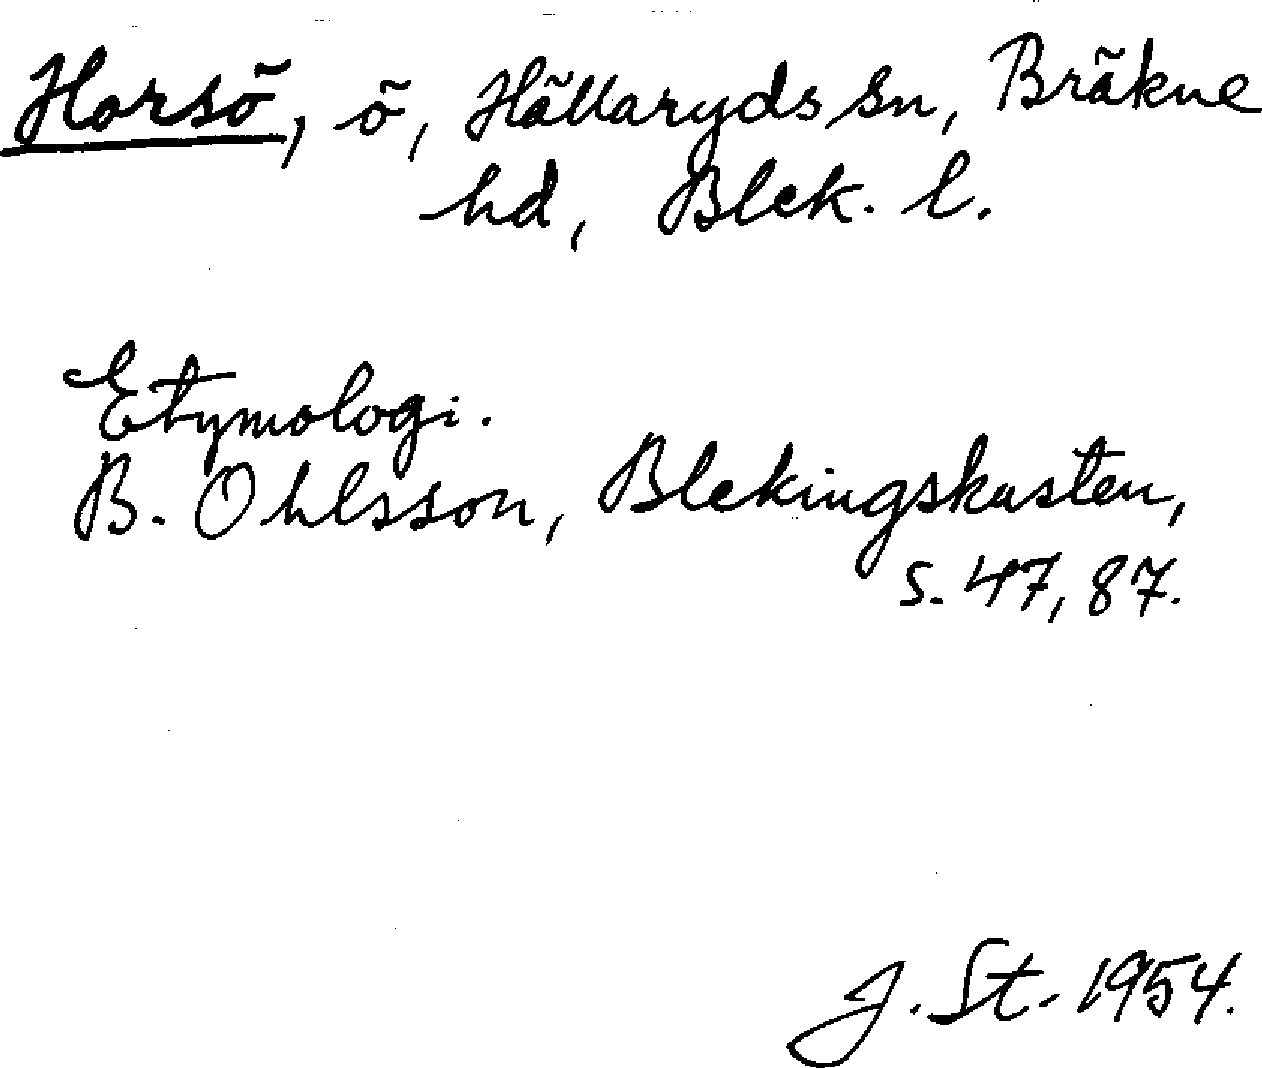 Horsö, ö, Hällaryds sn, Bräkne
hd, Blek. l.
Etymologi.
B. Ohlsson, Blekingskusten,
s. 47, 87.
J. St. 1954.